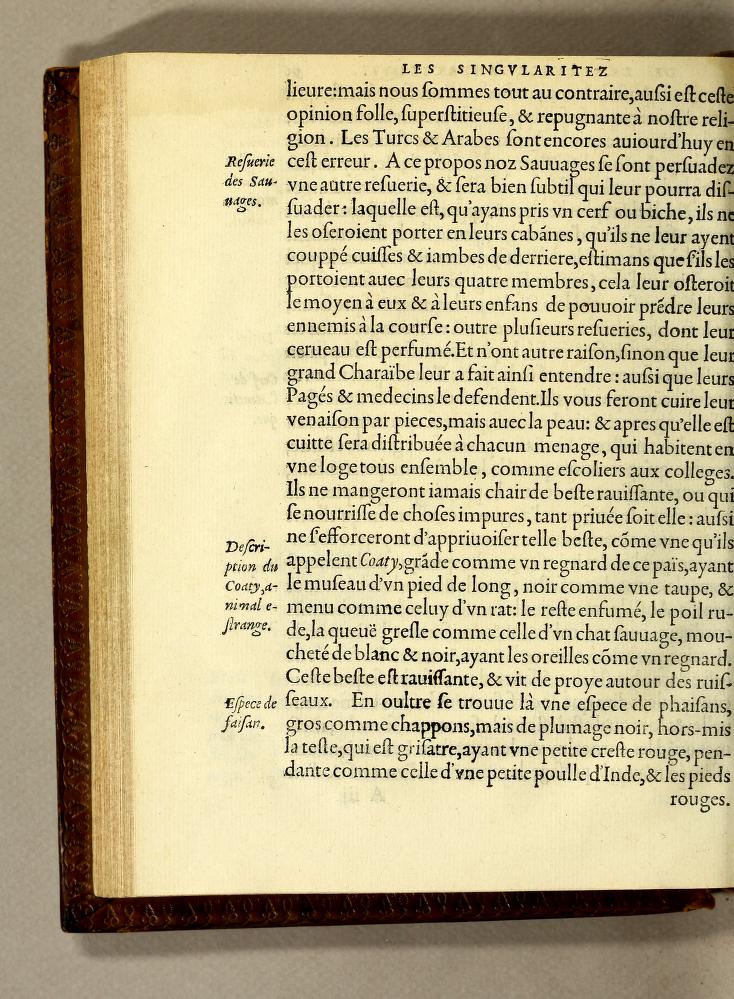 LES SINGVLARITEZ
lieure:mais nous ſommes tout au contraire,auſsi eſt ceſte
opinion folle, ſuperſtitieuſe, & repugnante à noſtre reli-
gion. Les Turcs & Arabes ſont encores auiourd'huy en
ceſt erreur. A ce propos noz Sauuages ſe ſont perſuadez
vne autre reſuerie, & ſera bien ſubtil qui leur pourra diſ-
ſuader: laquelle eſt, qu'ayans pris vn cerf ou biche, ils ne
les oſeroient porter en leurs cabánes, qu'ils ne leur ayent
couppé cuiſſes & iambes de derriere,eſtimans que ſ'ils les
portoient auec leurs quatre membres, cela leur oſteroit
le moyen à eux & à leurs enfans de pouuoir prẽdre leurs
ennemis à la courſe: outre pluſieurs reſueries, dont leur
cerueau eſt perfumé.Et n'ont autre raiſon,ſinon que leur
grand Charaïbe leur a fait ainſi entendre: auſsi que leurs
Pagés & medecins le defendent.Ils vous feront cuire leur
venaiſon par pieces,mais auec la peau: & apres qu'elle eſt
cuitte ſera diſtribuée à chacun menage, qui habitent en
vne loge tous enſemble, comme eſcoliers aux colleges.
Ils ne mangeront iamais chair de beſte rauiſſante, ou qui
ſe nourriſſe de choſes impures, tant priuée ſoit elle: auſsi
ne ſ'efforceront d'appriuoiſer telle beſte, cõme vne qu'ils
appelent Coaty,grãde comme vn regnard de ce païs,ayant
le muſeau d'vn pied de long, noir comme vne taupe, &
menu comme celuy d'vn rat: le reſte enfumé, le poil ru-
de,la queuë greſle comme celle d'vn chat ſauuage, mou-
cheté de blanc & noir,ayant les oreilles cõme vn regnard.
Ceſte beſte eſt rauiſſante, & vit de proye autour des ruiſ-
ſeaux. En oultre ſe trouue là vne eſpece de phaiſans,
gros comme chappons,mais de plumage noir, hors-mis
la teſte,qui eſt griſatre,ayant vne petite creſte rouge, pen-
dante comme celle d'vne petite poulle d'Inde,& les pieds
rouges.
Reſuerie
des Sau-
uages.
Deſcri-
ption du
Coaty,a-
nimal e-
ſtrange.
Eſpece de
faiſan.